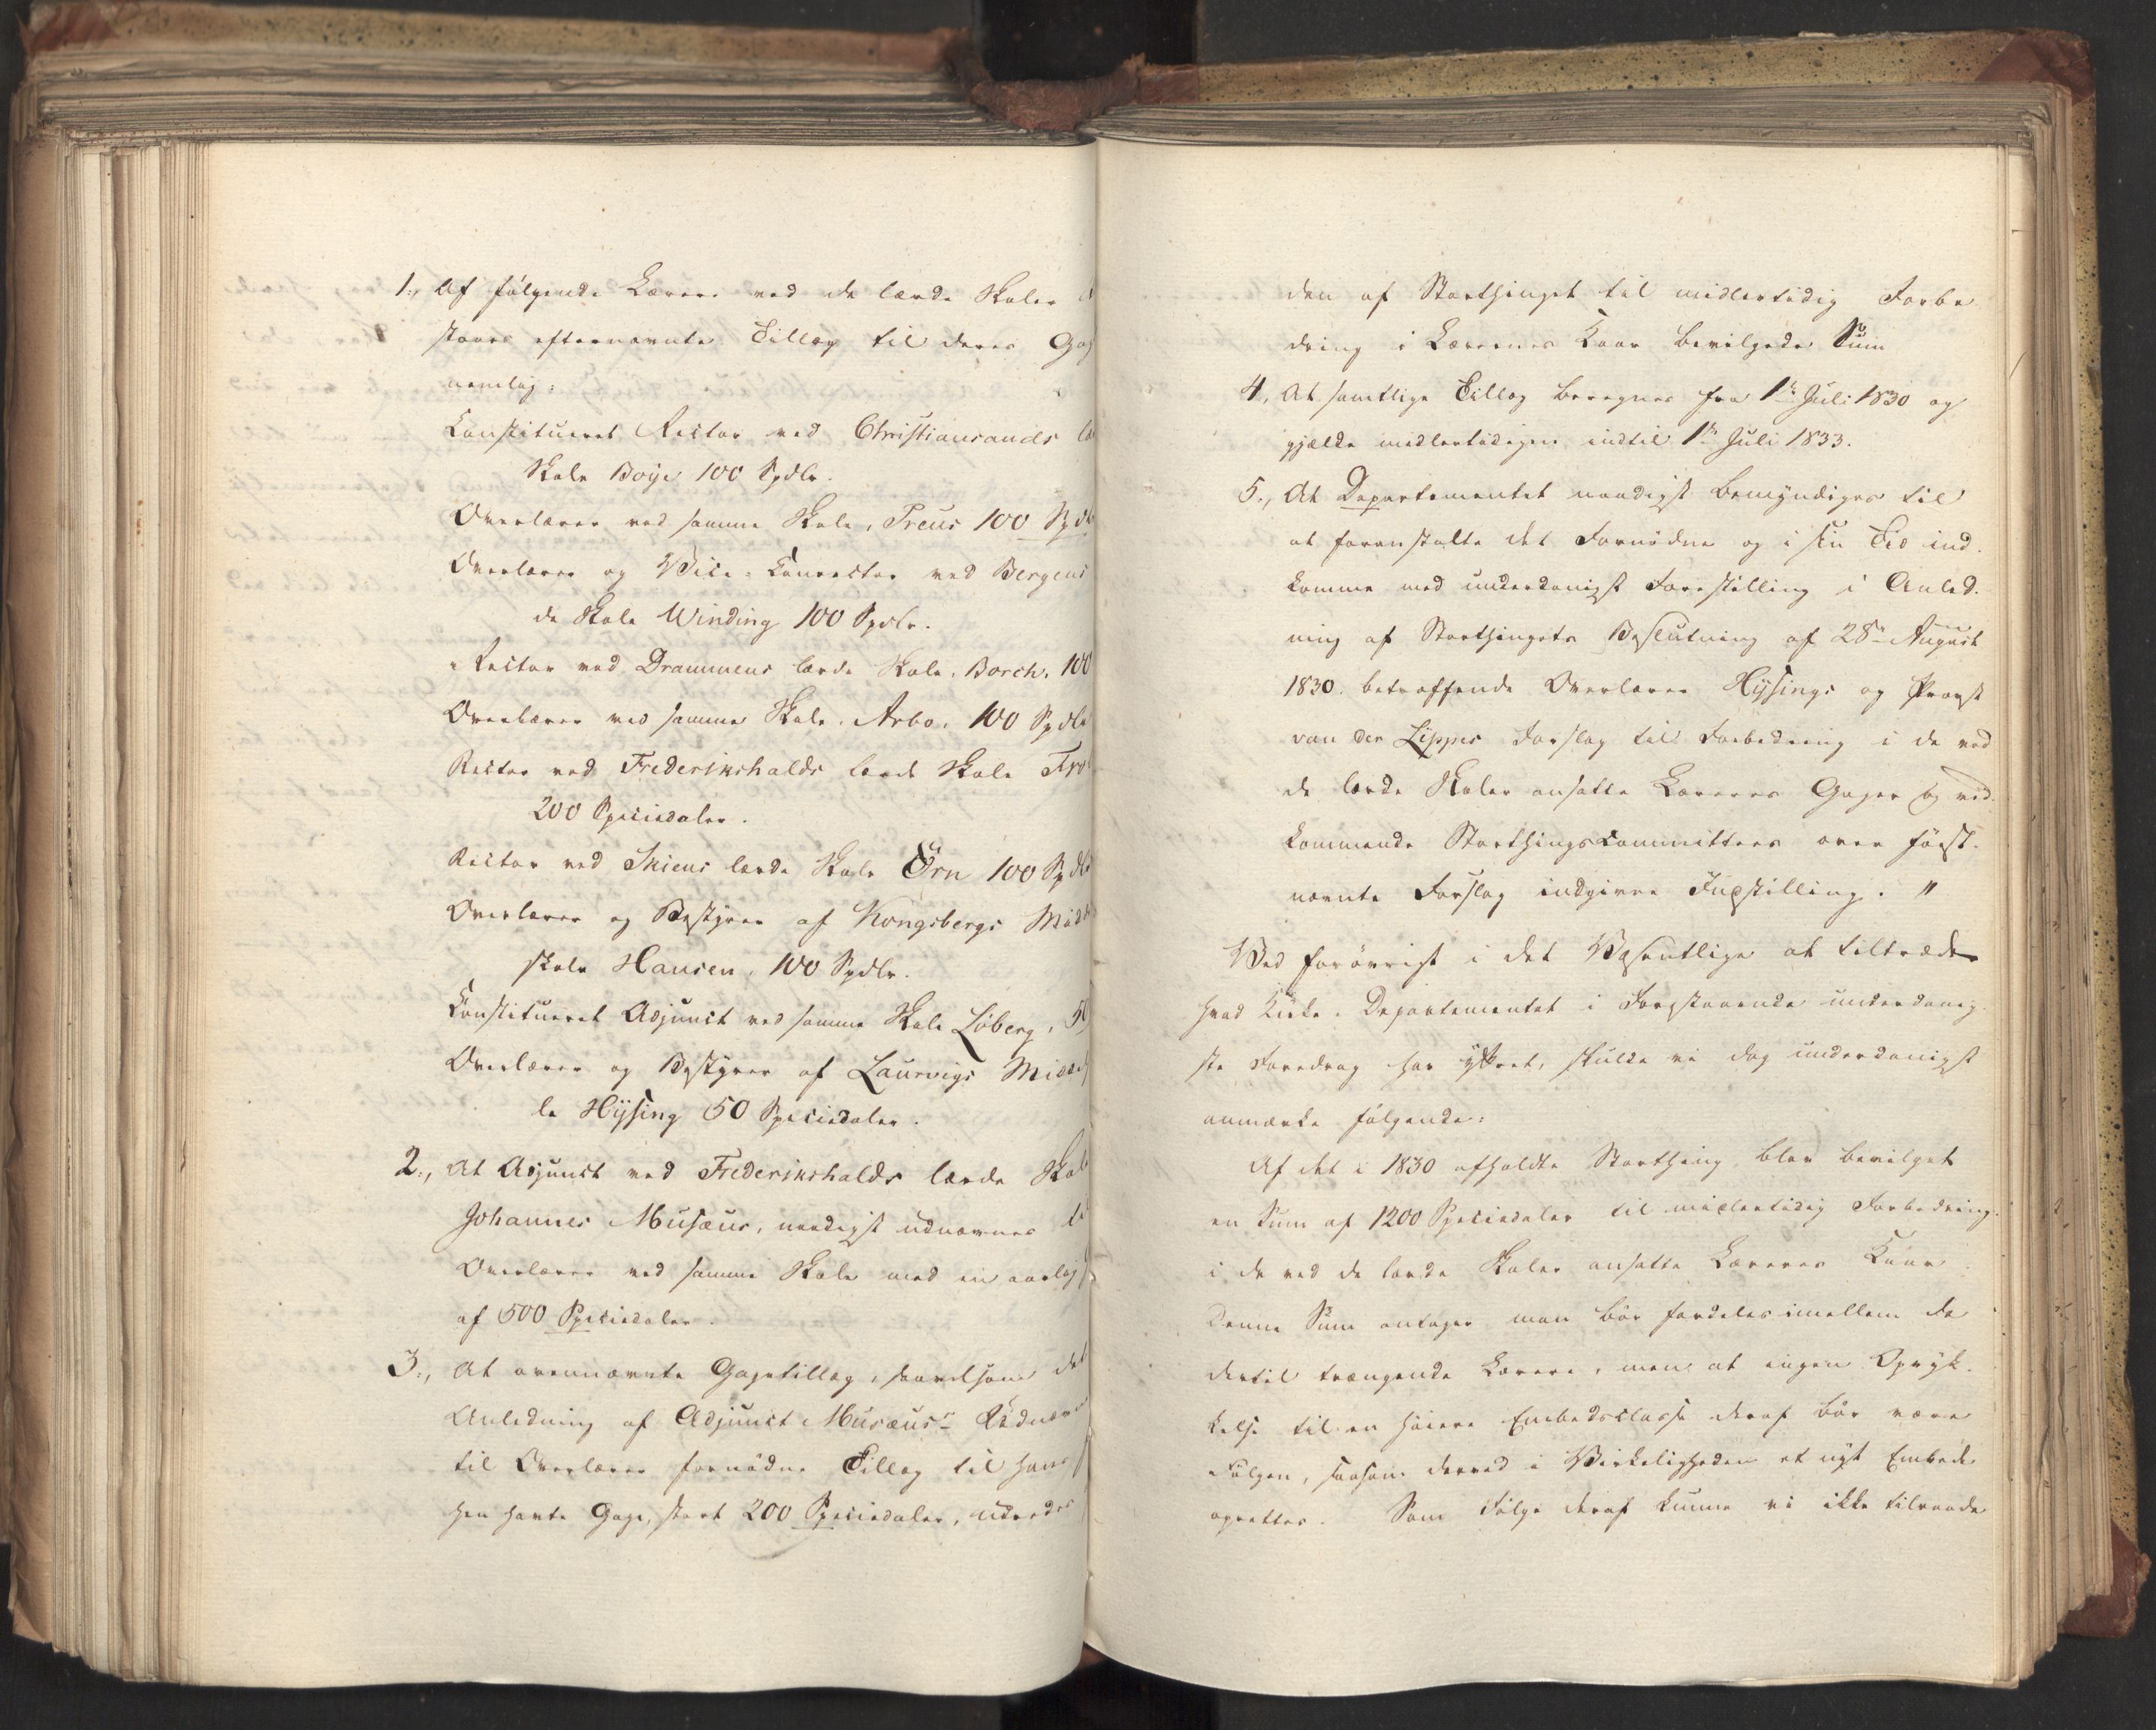 1., At følgende Lærere ved de lærde Skoler
staaes efternævnte Tillæg til deres Gag
nemlig:
Constitueret Rector ved Christiansands læ
Skole Boye 100 Spdlr.
Overlærer ved samme Skole, Preus 100 Spdlr
Overlærer og Vice-Conrector ved Bergens
de Skole Winding 100 Spdlr.
Rector ved Drammens lærde Skole, Borch, 100
Overlærer ved samme Skole, Arbo, 100 Spdlr
Rector ved Frederikshalds lærde Skole
200 Speciedaler.
Rector ved Skiens lærde Skole Örn 100 Spdlr
Overlærer og Bestyrer af Kongsbergs Midd
skole Hansen, 100 Spdlr.
Constitueret Adjunct ved samme Skole Löberg, 50
Overlærer og Bestyrer af Laurvigs Midd
le Hysing 50 Speciedaler.
2., At Adjunct ved Frederikshalds lærde Skole
Johannes Musæus, naadigst udnævnes til
Overlærer ved samme Skole med en aarlig
af 500 Speciedaler.
3., At ovennævnte Gagetillæg, saavelsom det
Anledning af Adjunct Musæus's Udnævn
til Overlærer fornödne Tillæg til hans
hen havte Gage, stort 200 Speciedaler, udredes
den af Storthinget til midlertidig Forbe
dring i Lærernes Kaar bevilgede Sum
4, At samtlige Tillæg beregnes fra 1ste Juli 1830 og
gjælde midlertidigen indtil 1ste Juli 1833.
5., At Departementet naadigst bemyndiges til
at foranstalte det Fornödne og i sin Tid ind-
komme med underdanigst Forestilling i Anled-
ning af Storthingets Beslutning af 28de August
1830. betræffende Overlærer Hysings og Provst
van der Lippes Forslag til Forbedring i de ved
de lærde Skoler ansatte Læreres Gager og ved-
kommende Storthingscommittees over först-
nævnte Forslag indgivne Indstilling. "
Ved forövrigt i det Væsentlige at tiltræde
hvad Kirke-Departementet i Forestaaende underdanig-
ste Foredrag har yttret, skulde vi dog underdanigst
anmærke følgende:
Af det i 1830 afholdte Storthing blev bevilget
en Sum af 1200 Speciedaler til midlertidig Forbedring
i de ved de lærde Skoler ansatte Læreres Kaar.
Denne Sum antager man bör fordeles imellem de
dertil trængende Lærere, men at ingen Opryk-
kelse til en höiere Embedsclasse deraf bör være
Fölgen, saasom derved i Virkeligheden et nyt Embede
oprettes. Som Fölge deraf kunne vi ikke tilraade